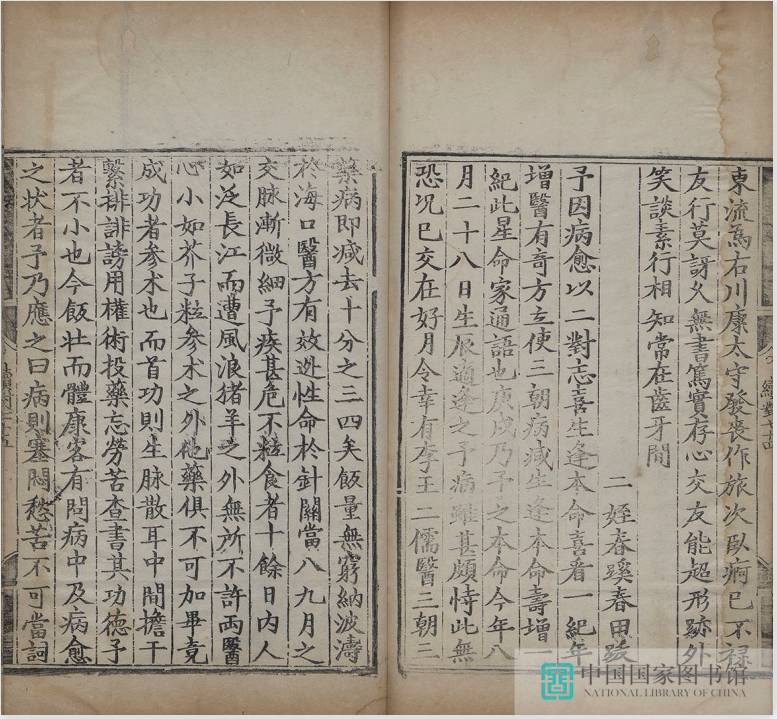 東流爲右川康太守發喪作旅次臥痾已不祿
友行莫訝久無書篤實存心交友能超形跡外
笑談素行相知常在齒牙間
二姪春蹊春田跋
予因病愈以二對志喜生逢本命喜看一紀年
增醫有奇方立使三朝病減生逢本命壽增一
紀此星命家通語也庚戌乃予之本命今年八
月二十八日生辰適逢之予病雖甚頗恃此無
恐況巳交在好月令幸有李王二儒醫三朝三
藥病即減去十分之三四矣飯量無窮納波濤
於海口醫方有效迯性命於針關當八九月之
交脉漸微細予疾甚危不粒食者十餘日内人
如泛長江而遭風浪猪羊之外無所不許両醫
心小如芥子粒参术之外他藥俱不可加畢竟
成功者参术也而首功則生脉散耳中間擔干
繫排誹謗用權術投藥忘勞苦查書其功德予
者不小也今飯壮而體康客有問病中及病愈
之状者予乃應之曰病則塞悶愁苦不可當詞
中国国家图书馆
NATIONAL LIBRARY OF CHINA